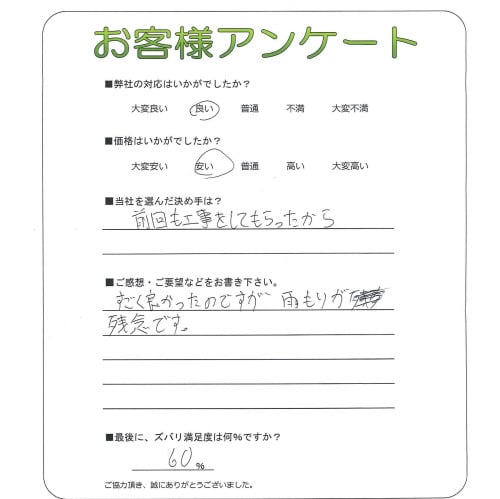 お客様アンケート
■弊社の対応はいかがでしたか？
大変良い 良い 普通 不満 大変不満
■価格はいかがでしたか？
大変安い 安い 普通 高い 大変高い
■当社を選んだ決め手は？
前回も工事をしてもらったから
■ご感想・ご要望などをお書き下さい。
すごく良かったのですが 雨もりが
残念です。
■最後に、ズバリ満足度は何%ですか？
60 %
ご協力頂き、誠にありがとうございました。